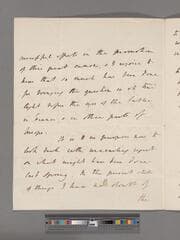 effects in the promotion
of this great cause, & I rejoice to
know that so much has been done
for bringing the question in its true
light before the eyes of the public
in France & in other parts of
Europe.
It is to no purpose now to
look back with unavailing regret
on what might have been done
last Spring. In the present state
of things I have no doubt of
the